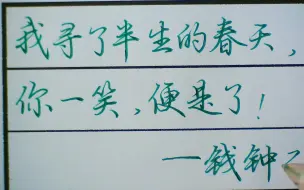 我寻了半生的春天，
你一笑，便是了！
一钱钟